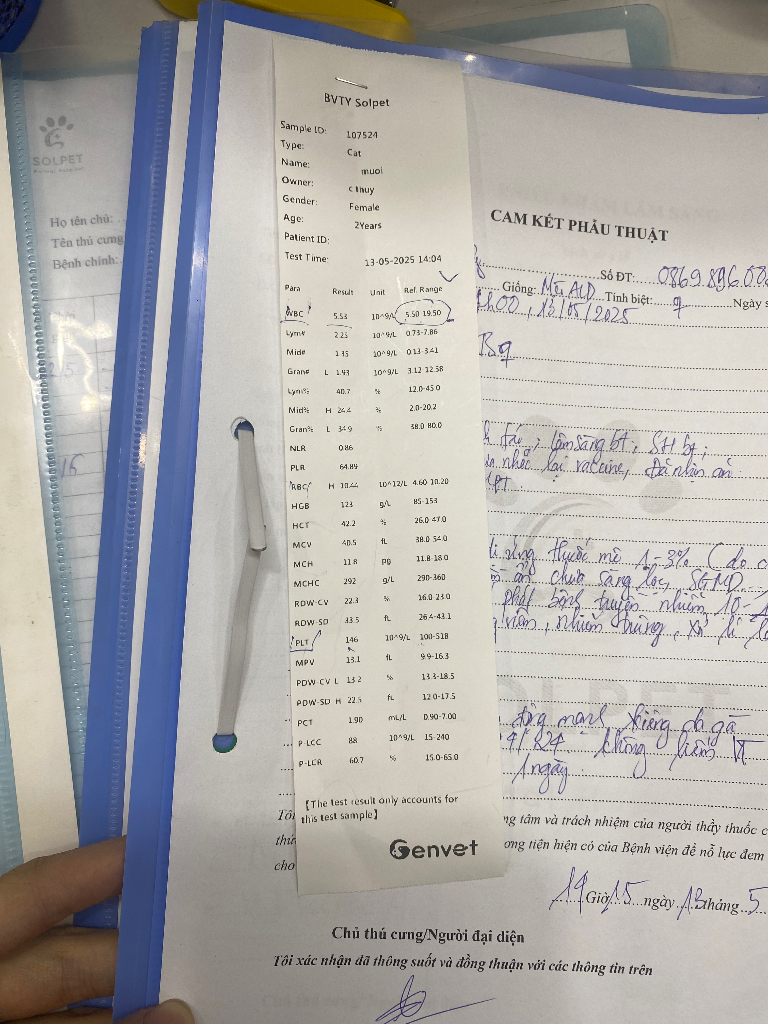 SOLPET
Họ tên chủ:
Tên thú cưng
Bệnh chính:
BVTY Solpet
Sample ID: 107524
Type: Cat
Name: muoi
Owner: c thuy
Gender: Female
Age: 2Years
Patient ID:
Test Time: 13-05-2025 14:04
Para Result Unit Ref. Range
WBC 5.53 10^9/L 5.50 19.50
Lym# 2.25 10^9/L 0.73-7.86
Mid# 1.35 10^9/L 0.13-3.41
Gran# L 1.93 10^9/L 3.12-12.58
Lym% 40.7 % 12.0-45.0
Mid% H 24.4 % 2.0-20.2
Gran% L 34.9 % 38.0-80.0
NLR 0.86
PLR 64.89
RBC H 10.44 10^12/L 4.60-10.20
HGB 123 g/L 85-153
HCT 42.2 % 26.0-47.0
MCV 40.5 fL 38.0-54.0
MCH 11.8 pg 11.8-18.0
MCHC 292 g/L 290-360
RDW-CV 22.3 % 16.0-23.0
RDW-SD 33.5 fL 26.4-43.1
PLT 146 10^9/L 100-518
MPV 13.1 fL 9.9-16.3
PDW-CV L 13.2 % 13.3-18.5
PDW-SD H 22.5 fL 12.0-17.5
PCT 1.90 mL/L 0.90-7.00
P-LCC 88 10^9/L 15-240
P-LCR 60.7 % 15.0-65.0
【The test result only accounts for
this test sample】
Genvet
CAM KẾT PHẪU THUẬT
Số ĐT: 0869.896.08
Giống: Mèo ALD Tính biệt: ♀ Ngày s
h00, 13/05/2025
lâm sàng bt, SH bt;
nhắc lại vaccine, đã nhịn ăn
dùng thuốc mê 1-3% (do c
chưa sàng lọc, SGMD.
phát bệnh truyền nhiễm 10-1
viêm, nhiễm trùng, xử lí
không liếm
1 ngày
Tôi
ng tâm và trách nhiệm của người thầy thuốc c
thứ
ơng tiện hiện có của Bệnh viện để nỗ lực đem
cho
19 Giờ 15 ngày 13 tháng 5
Chủ thú cưng/Người đại diện
Tôi xác nhận đã thông suốt và đồng thuận với các thông tin trên